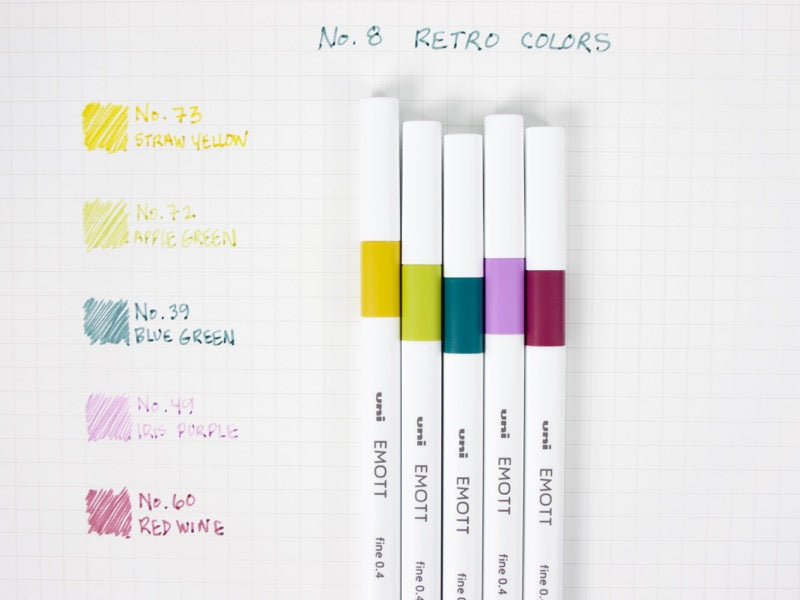 No. 8 RETRO COLORS
No. 73
STRAW YELLOW
No. 72
APPLE GREEN
No. 39
BLUE GREEN
No. 49
IRIS PURPLE
No. 60
RED WINE
uni EMOTT fine 0.4
uni EMOTT fine 0.4
uni EMOTT fine
uni EMOTT fine 0.4
uni EMOTT fine 0.